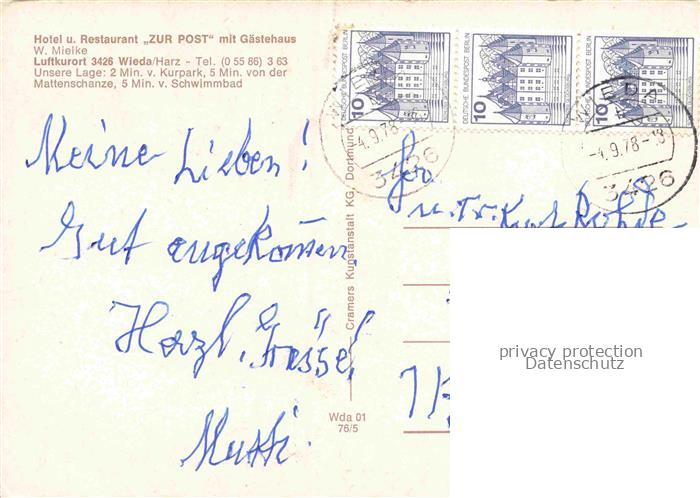 Hotel u. Restaurant „ZUR POST” mit Gästehaus
W. Mielke
Luftkurort 3426 Wieda/Harz - Tel. (0 55 86) 3 63
Unsere Lage: 2 Min. v. Kurpark, 5 Min. von der
Mattenschanze, 5 Min. v. Schwimmbad
DEUTSCHE BUNDESPOST BERLIN
10
DEUTSCHE BUNDESPOST BERLIN
10
DEUTSCHE BUNDESPOST BERLIN
10
-4.9.78
3426
WIEDA
-4.9.78-13
3426
Meine Lieben!
Gut angekommen.
Herzl. Grüsse!
Mutti.
Cramers Kunstanstalt KG, Dortmund
Wda 01
76/5
Fam.
u. Fr. Kurt Rohde-
privacy protection
Datenschutz